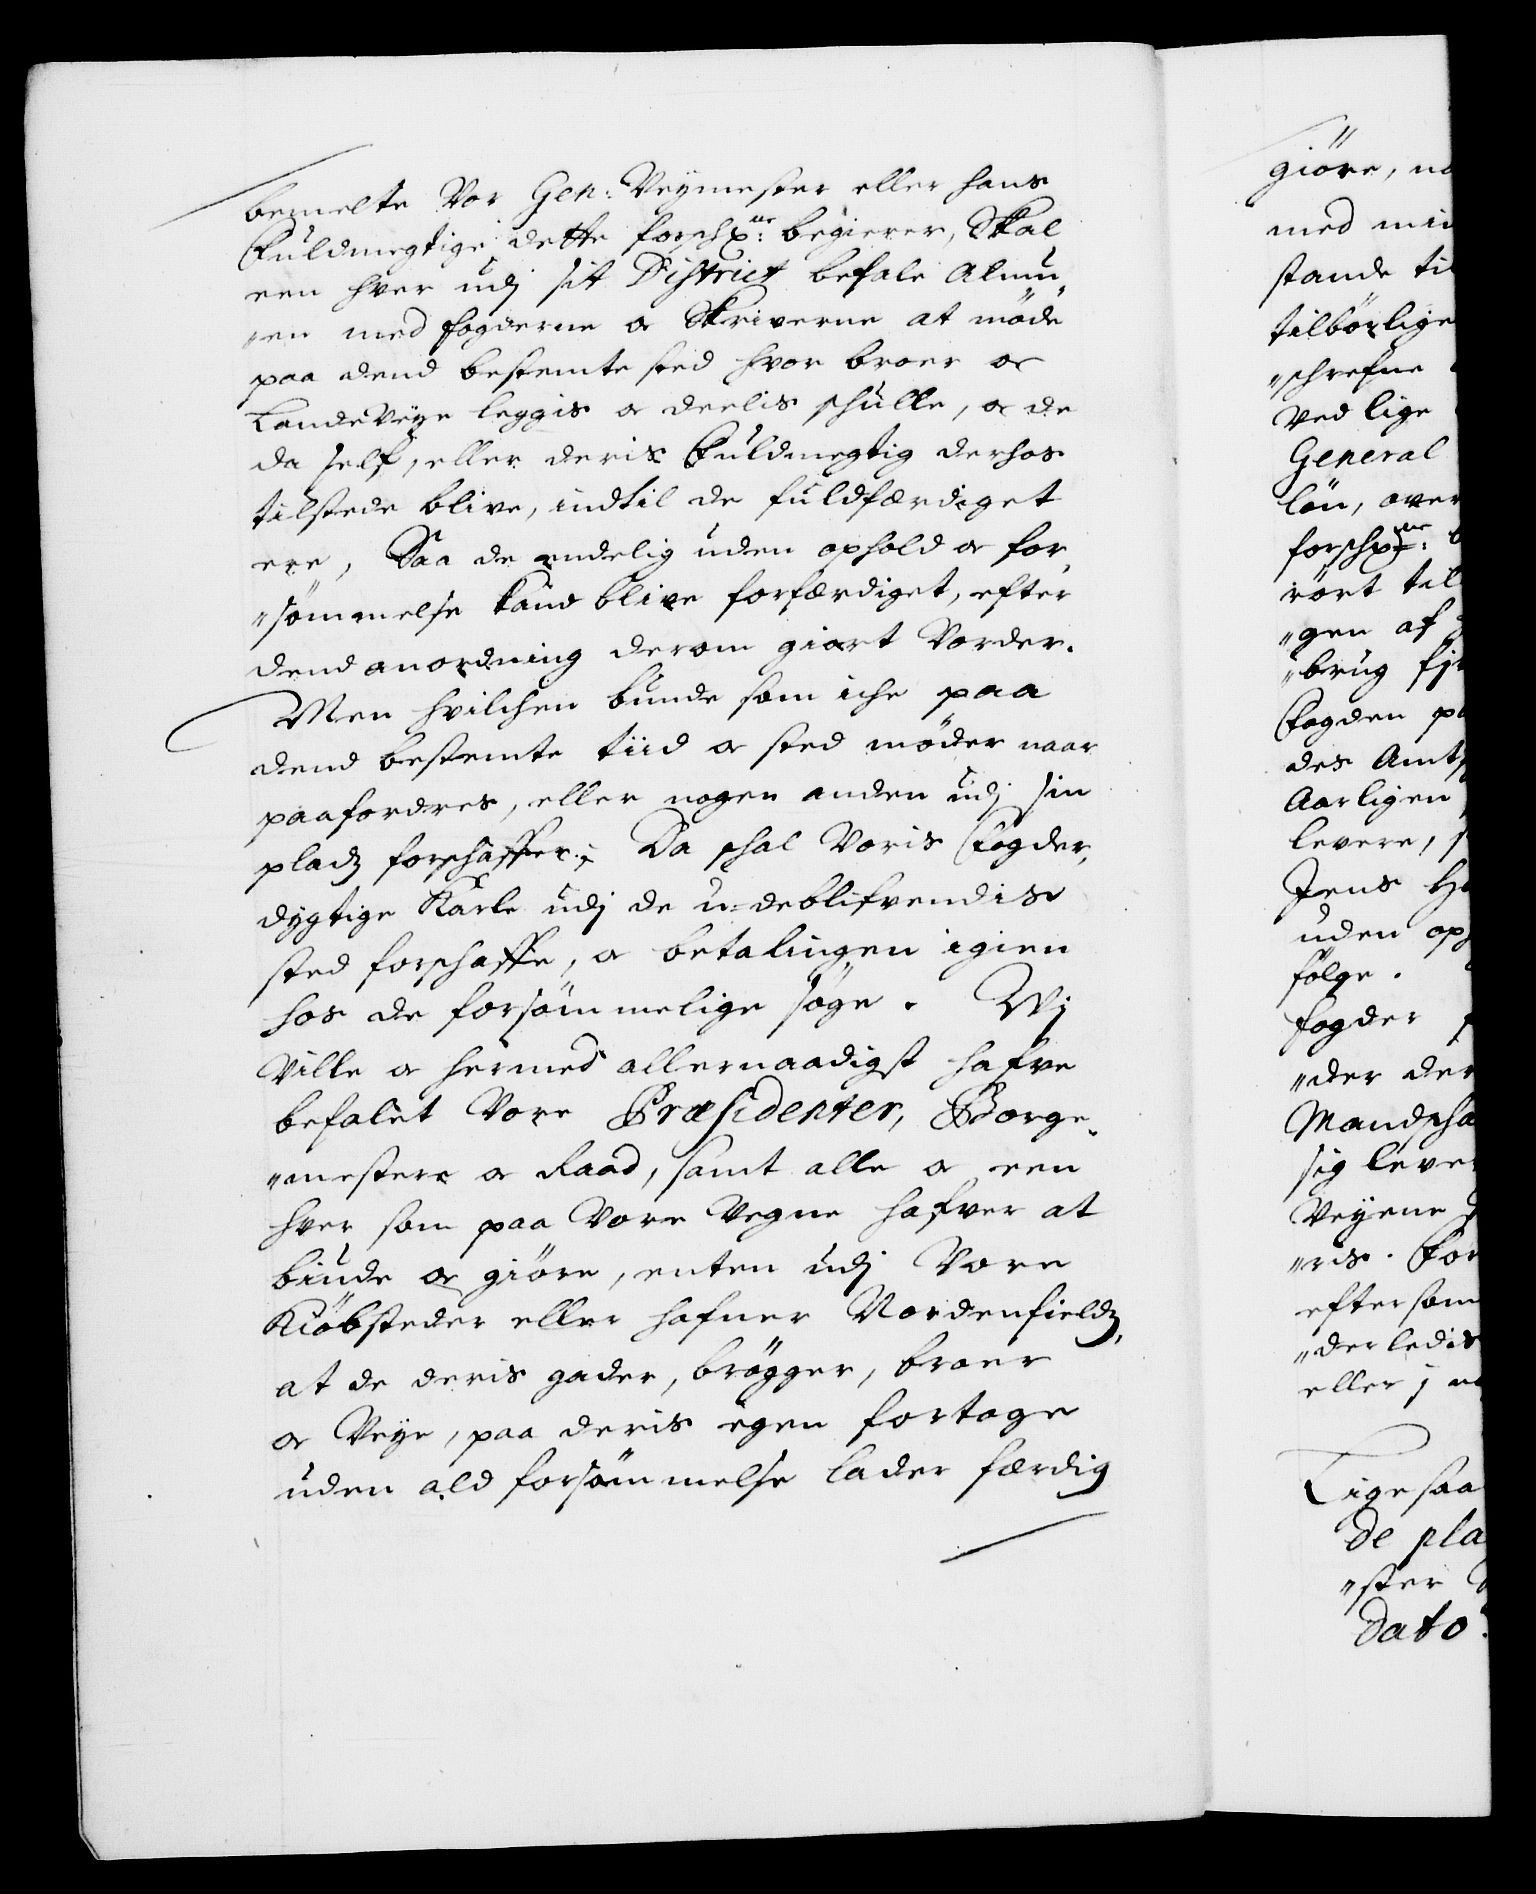 bemelte Vor Gen: Veymester eller hans
Fuldmegtige dette forschr: begierer, Skal
een hver udj sit District befale Almu„
„en med fogderne oc Skriverne at møde
paa dend bestemte sted hvor broer oc
LandeVeye leggis oc deelis schulle, oc de
da self, eller deris Fuldmegtig derhos
tilstede blive, indtil de fuldfærdiget
ere, Saa de endelig uden ophold oc for„
„sömmelse kand blive forfærdiget, efter
dend anordning derom giort Vorder.
Men hvilchen bunde som iche paa
dend bestemte tiid oc sted möder naar
paafordres, eller nogen anden udj sin
pladz forschaffer; Da schal Voris Fogder,
dygtige Karle udj de u=deblifvendis
sted forschaffe, oc betalingen igien
hos de forsömmelige söge. Wj
Ville oc hermed allernaadigst hafve
befalet Vore Præsidenter, Borge„
„mestere oc Raad, samt alle oc een
hver som paa Vore Vegne hafver at
biude oc giöre, enten udj Vore
Kiöbsteder eller hafner Nordenfieldz,
at de deris gader, brögger, broer
oc Veye, paa deris egen fortage
uden ald forsömmelse lader færdig
giöre, na
med min
stande til
tilbörlige
„schrefne
Ved lige
General
lön, over
forschr:
rört til
„gen af
„brug
Fogden
des Amt
Aarligen
levere,
Jens H
uden op
fölge.
fogder
„der der
Mandscha
sig leve
Veyene
„ris. For
eftersom
„derledis
eller j
Ligesaa
De pla
„ster
Dato